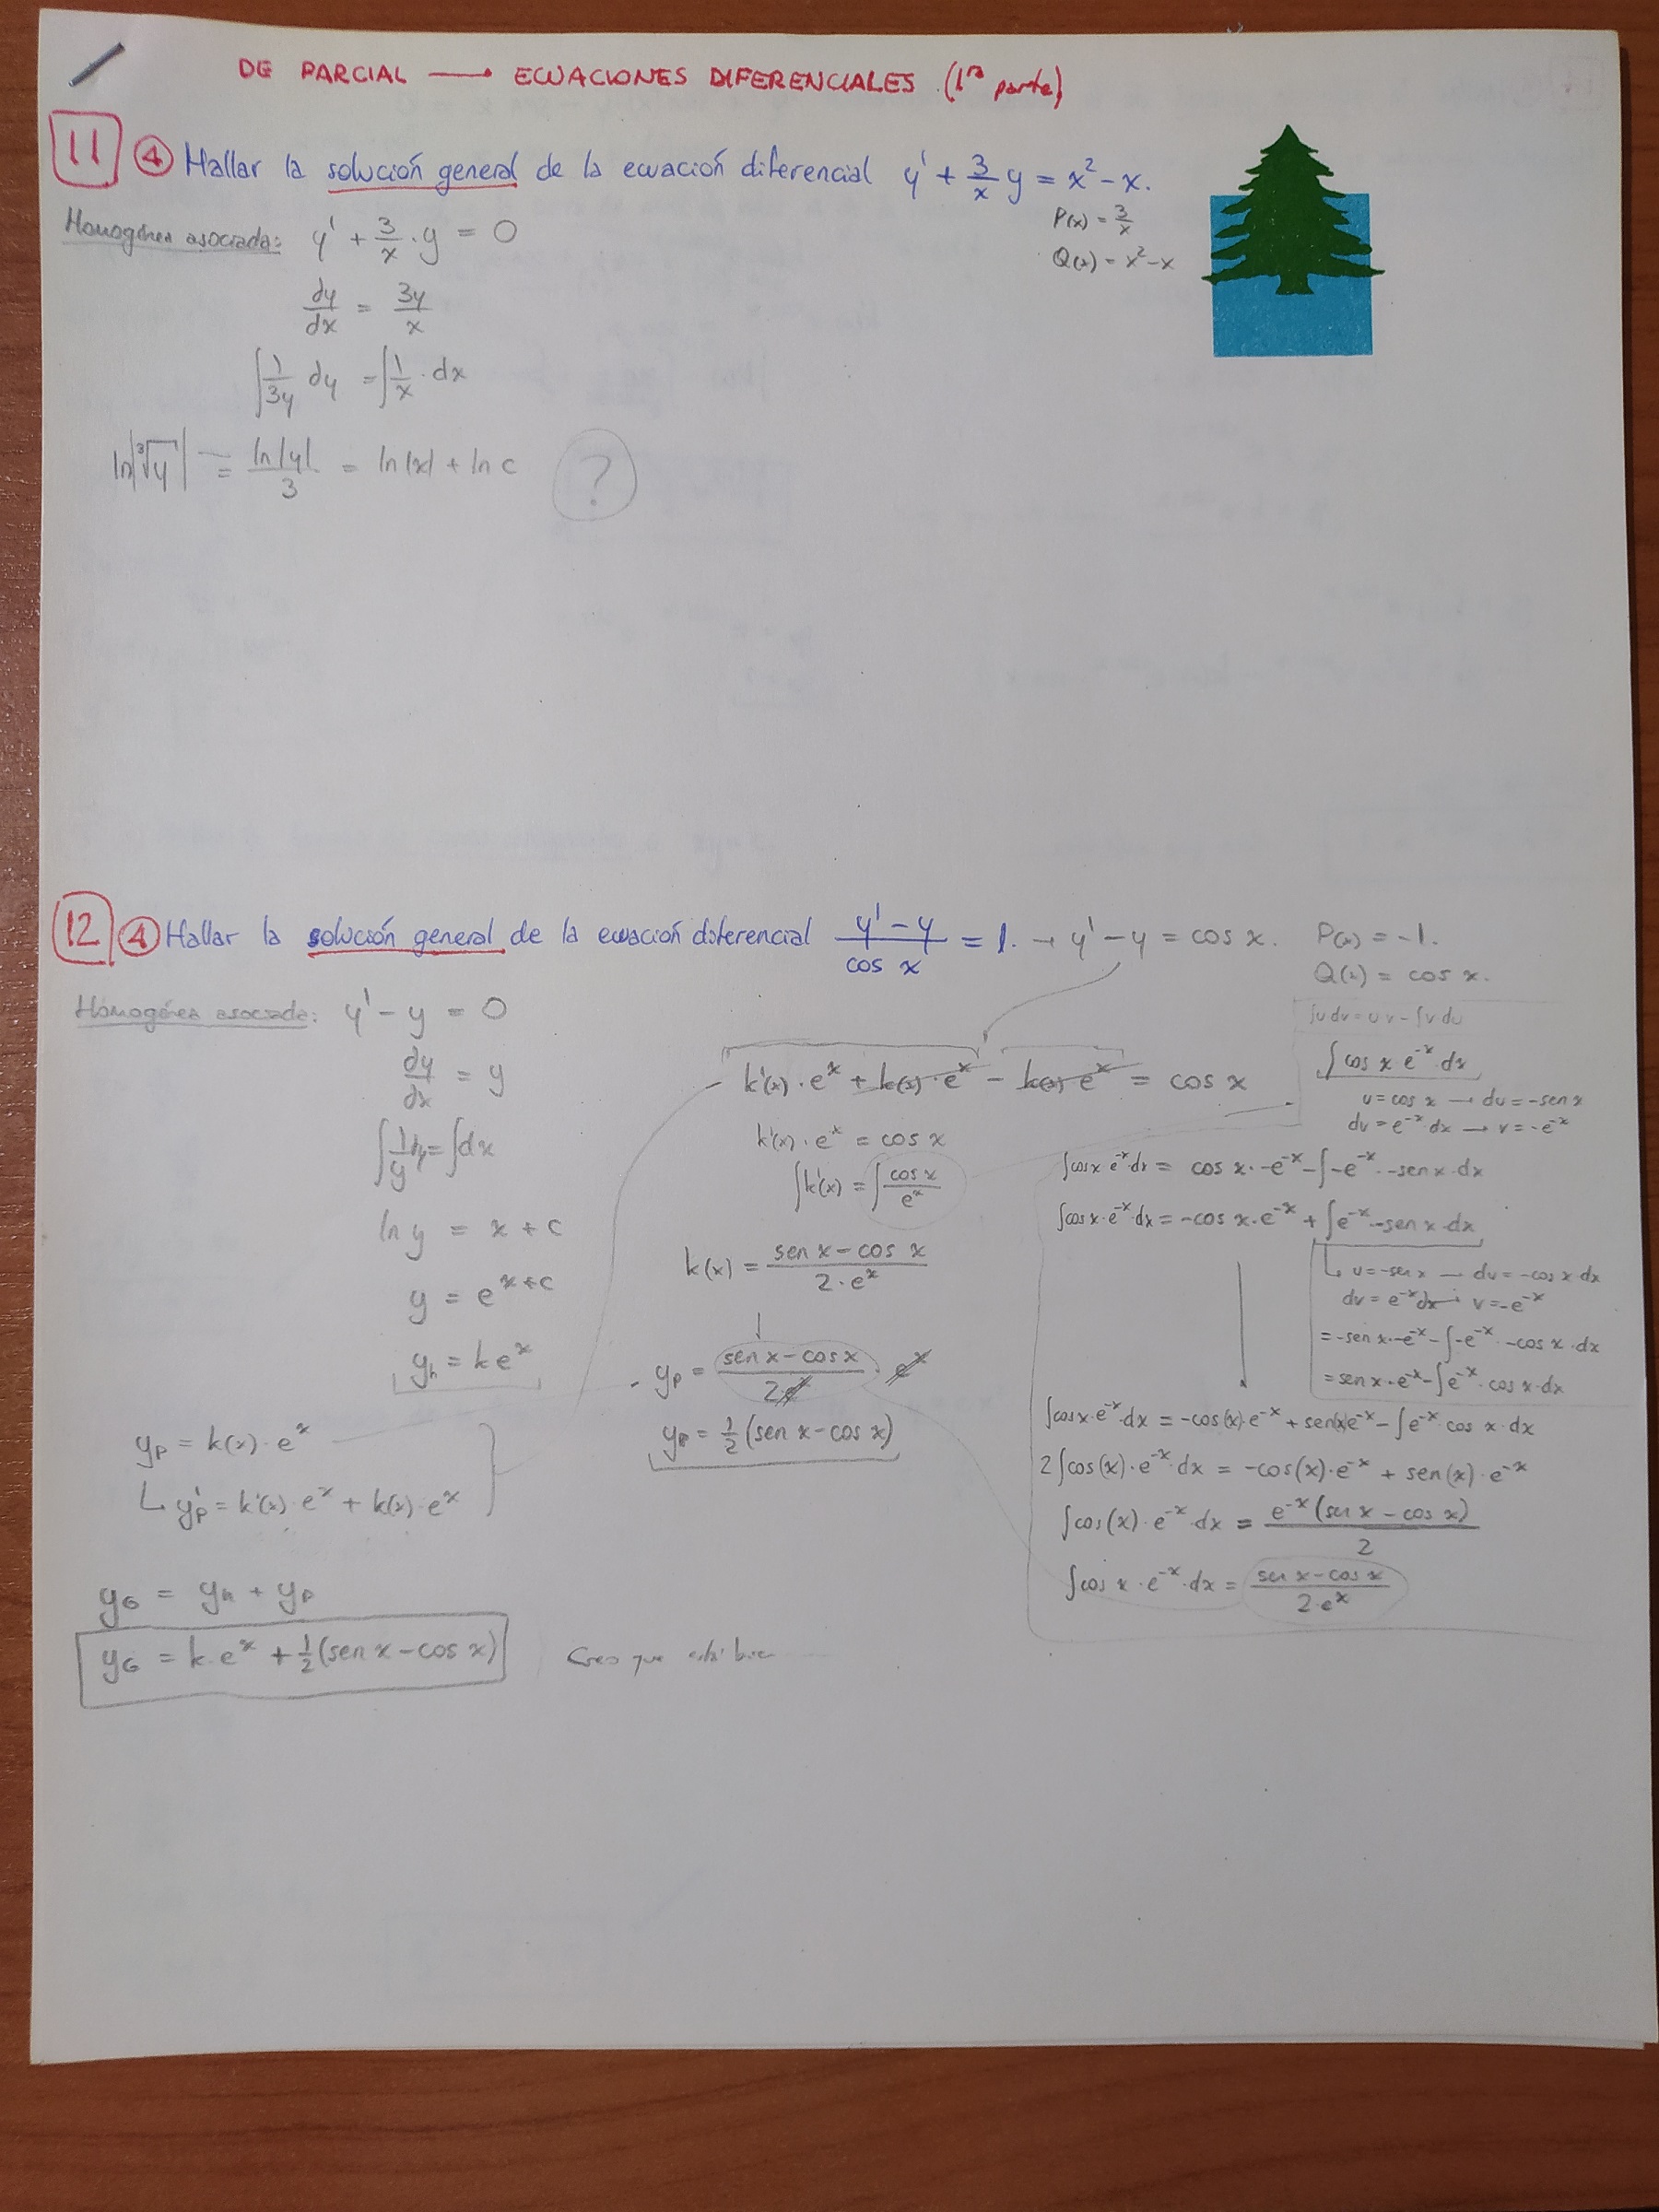 DE PARCIAL → ECUACIONES DIFERENCIALES (1ra parte)
11 4 Hallar la solución general de la ecuación diferencial y' + 3/x y = x² - x.
P(x) = 3/x
Q(x) = x² - x
Homogénea asociada: y' + 3/x · y = 0
dy/dx = 3y/x
∫ 1/3y dy = ∫ 1/x · dx
ln|³√y| = ln|y|/3 = ln|x| + ln c ?
12 4 Hallar la solución general de la ecuación diferencial (y' - y)/cos x = 1. → y' - y = cos x.
P(x) = -1.
Q(x) = cos x.
Homogénea asociada: y' - y = 0
dy/dx = y
∫ 1/y dy = ∫ dx
ln y = x + c
y = e^(x+c)
yh = k e^x
yp = k(x) · e^x
↳ y'p = k'(x) · e^x + k(x) · e^x
k'(x) · e^x + k(x) · e^x - k(x) e^x = cos x
k'(x) · e^x = cos x
∫ k'(x) = ∫ cos x / e^x
k(x) = (sen x - cos x)/(2 · e^x)
yp = (sen x - cos x)/(2 e^x) · e^x
yp = 1/2 (sen x - cos x)
∫u dv = u·v - ∫v du
∫ cos x e^-x dx
u = cos x → du = -sen x
dv = e^-x dx → v = -e^-x
∫cos x · e^-x · dx = cos x · -e^-x - ∫ -e^-x · -sen x · dx
∫cos x · e^-x · dx = -cos x · e^-x + ∫ e^-x · -sen x · dx
↳ u = -sen x → du = -cos x dx
dv = e^-x dx → v = -e^-x
= -sen x · -e^-x - ∫ -e^-x · -cos x · dx
= sen x · e^-x - ∫ e^-x · cos x · dx
∫cos x · e^-x · dx = -cos(x) · e^-x + sen(x) e^-x - ∫ e^-x cos x · dx
2 ∫cos(x) · e^-x · dx = -cos(x) · e^-x + sen(x) · e^-x
∫cos(x) · e^-x · dx = e^-x (sen x - cos x)/2
∫cos x · e^-x · dx = (sen x - cos x)/(2 · e^x)
yG = yh + yp
yG = k · e^x + 1/2 (sen x - cos x)
Creo que está bien